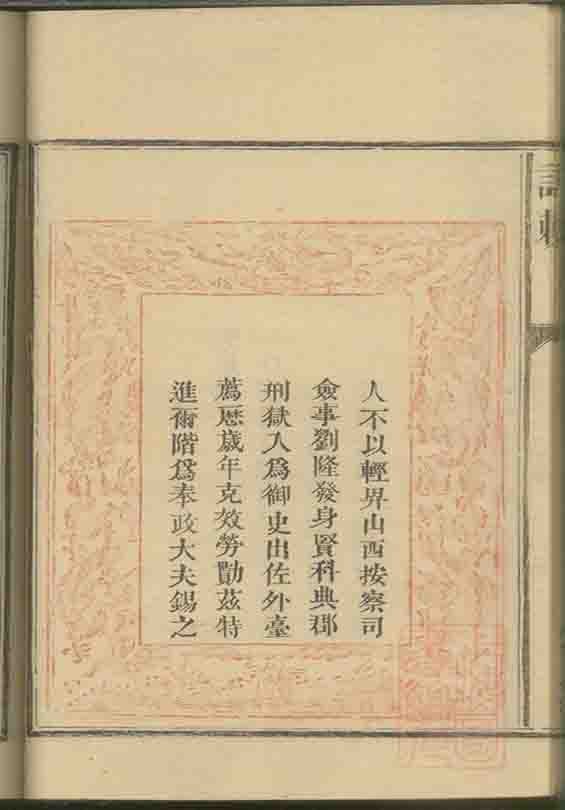 誥敕
人不以輕畀山西按察司
僉事劉隆發身賢科典郡
刑獄入爲御史出佐外臺
薦歷歲年克效勞勩茲特
進爾階爲奉政大夫錫之